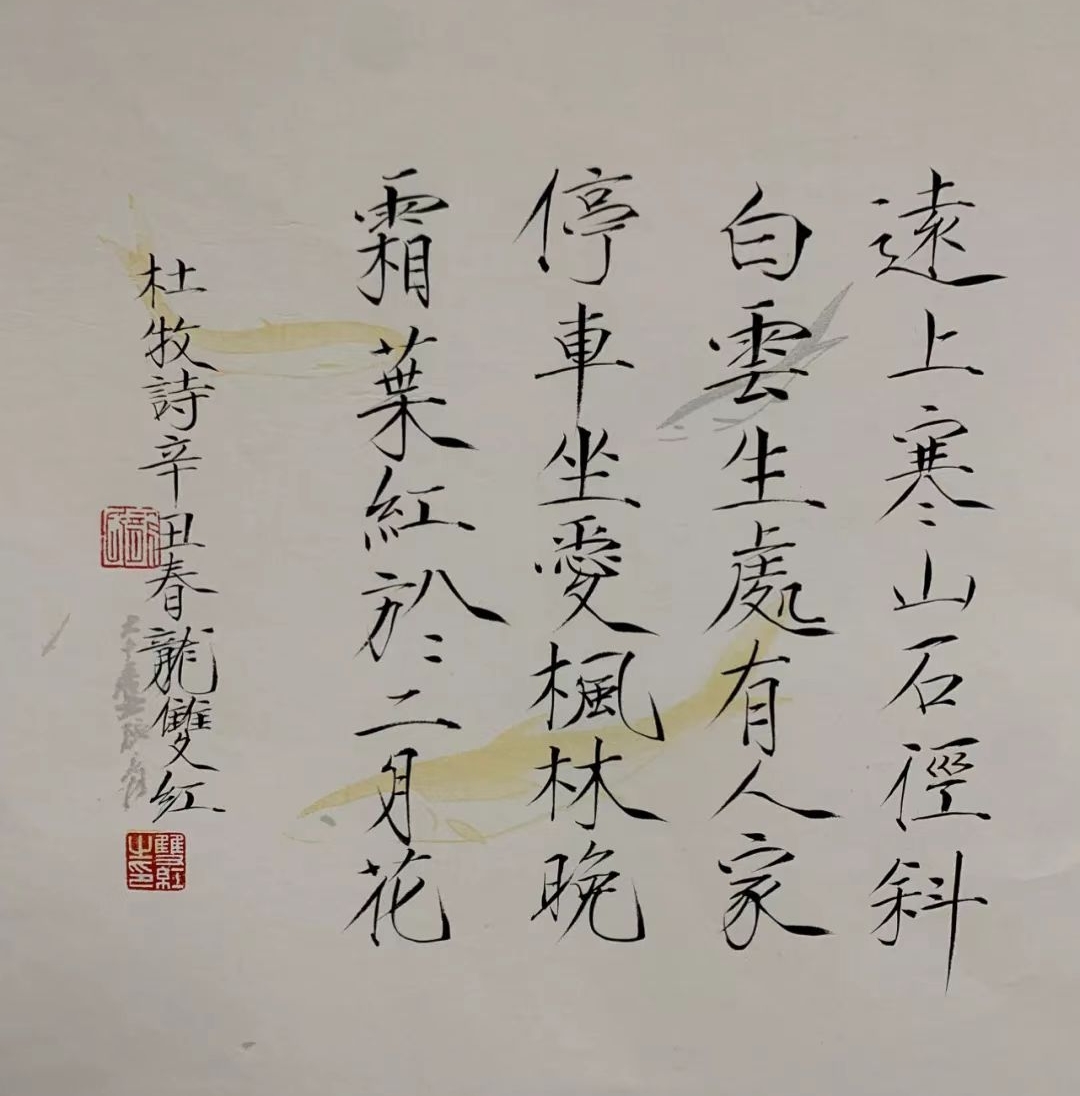 遠上寒山石徑斜
白雲生處有人家
停車坐愛楓林晚
霜葉紅於二月花
杜牧詩辛丑春龍雙紅
雙紅之印